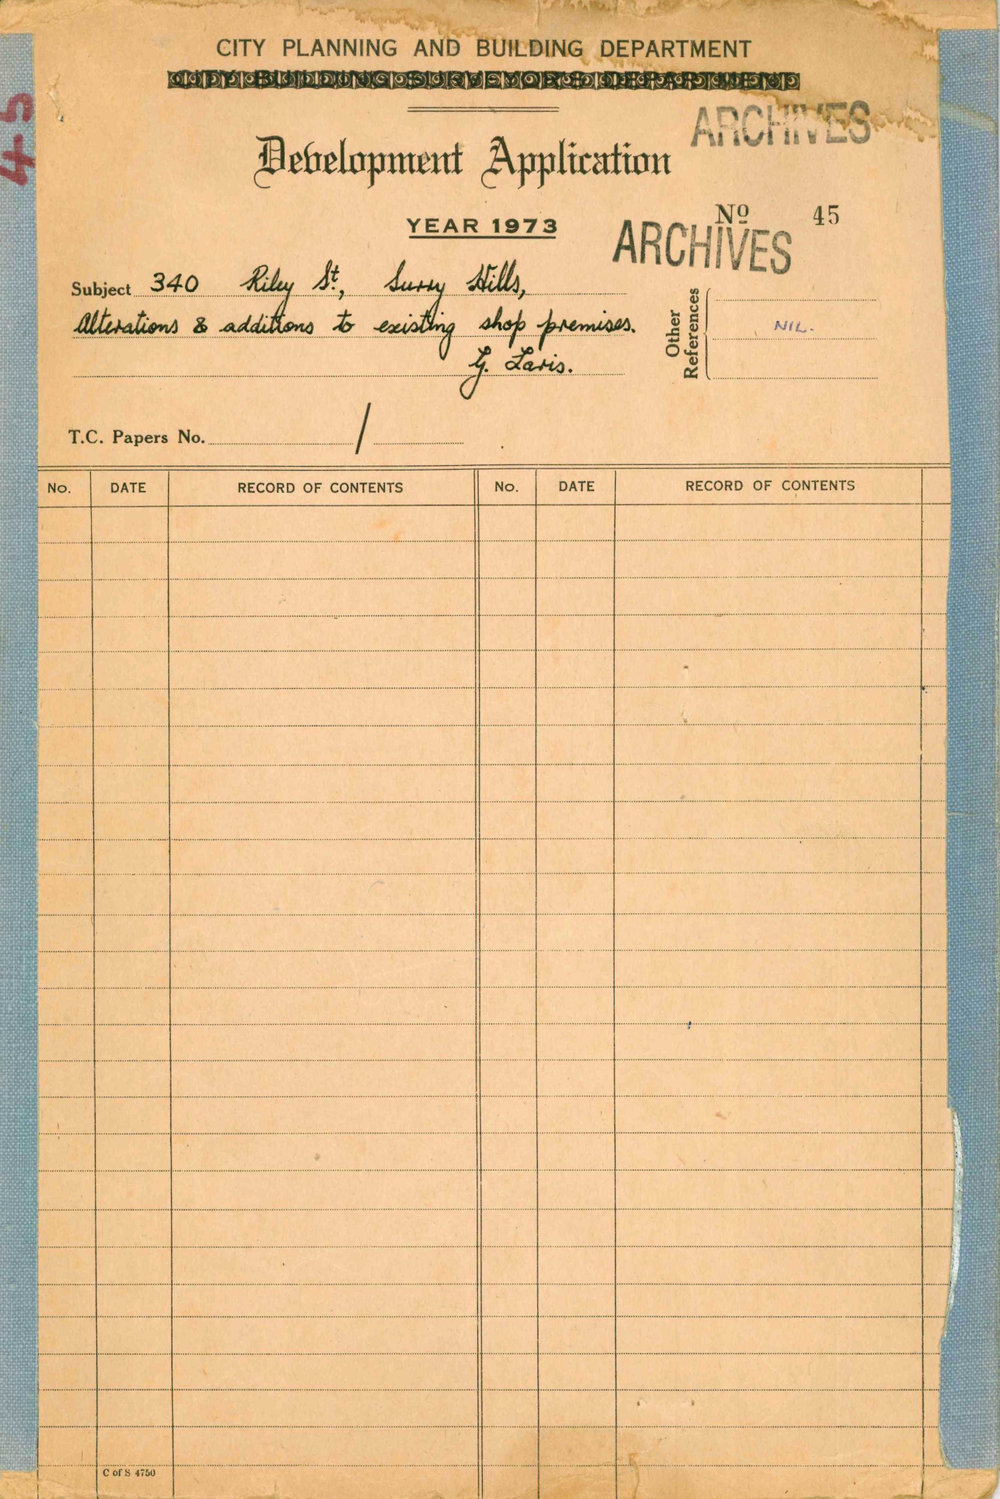 CITY PLANNING AND BUILDING DEPARTMENT
CITY BUILDING SURVEYOR'S DEPARTMENT
ARCHIVES
45
Development Application
YEAR 1973
Nº 45
ARCHIVES
Subject 340 Riley St., Surry Hills,
Alterations & additions to existing shop premises.
G. Laris.
Other References
NIL.
T.C. Papers No. /
No. DATE RECORD OF CONTENTS No. DATE RECORD OF CONTENTS
C of S 4750